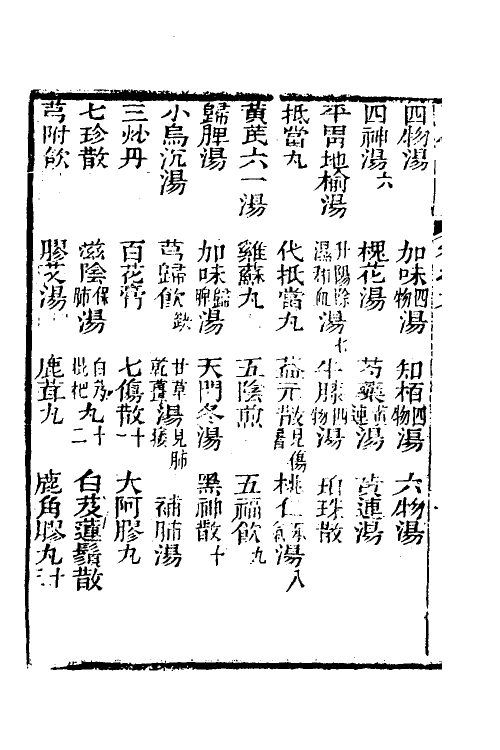 四物湯 加味四物湯 知栢四物湯 六物湯
四神湯六 槐花湯 芍藥黃連湯 黃連湯
平胃地榆湯 升陽除濕和血湯七 牛膝四物湯 珀珠散
抵當丸 代抵當丸 益元散見傷暑 桃仁湯八
黃芪六一湯 雞蘇丸 五陰煎 五福飲九
歸脾湯 加味歸脾湯 天門冬湯 黑神散十
小烏沉湯 芎歸飲缺 甘草乾薑湯見肺痿 補肺湯
三炒丹 百花膏 七傷散十一 大阿膠丸
七珍散 滋陰保肺湯 白及枇杷丸十二 白芨蓮鬚散
芎附飲 膠艾湯 鹿茸丸 鹿角膠丸十三